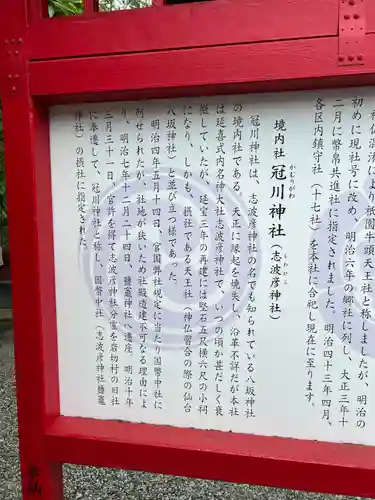 神仏混淆により祇園牛頭天王社と称しましたが、
初めに現社号に改め、明治六年の郷社に列し、大正三年十
二月に幣帛共進社に指定されました。明治四十三年四月、
各区内鎮守社（十七社）を本社に合祀し現在に至ります。
境内社 冠川神社（志波彦神社）
かむりがわ
しわひこ
冠川神社は、志波彦神社の名でも知られている八坂神社
の境内社である。天正に縁起を焼失し、沿革不詳だが本社
は延喜式内名神大社志波彦神社で、いつの頃か甚だしく衰
微していたが、延宝三年の再建には竪石五尺横六尺の小祠
になり、しかも、摂社である天王社（神仏習合の際の仙台
八坂神社）と並び立つ様であった。
明治四年五月十四日、官国弊社規定に当たり国幣中社に
列せられたが、社地が狭いため社殿造建不可なる理由によ
り、明治七年十二月二十四日、鹽竈神社へ遷座。明治十年
三月三十一日、官許を得て志波彦神社分霊を岩切村の旧社
に奉遷して、冠川神社と称し、国幣中社（志波彦神社鹽竈
神社）の摂社に指定された。
奉納